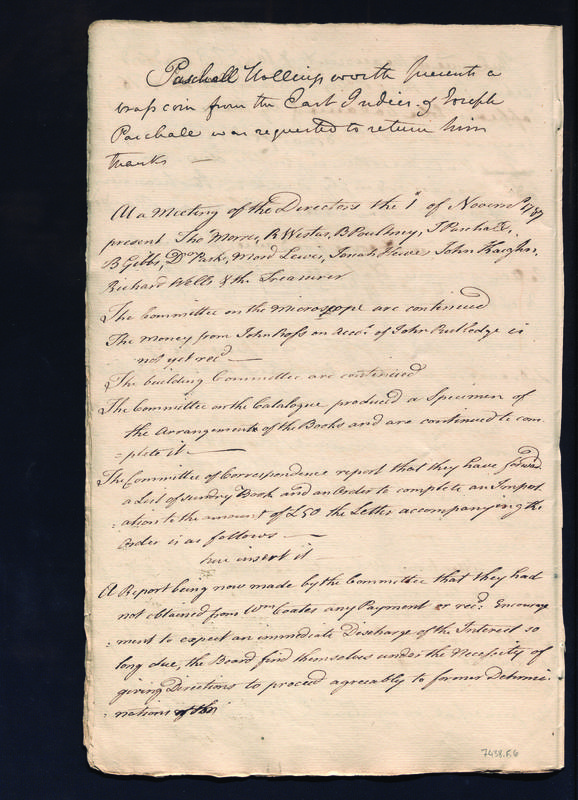 Paschall Hollingsworth presents a
brass coin from the East Indies. & Joseph
Paschall was requested to return him
thanks —
At a Meeting of the Directors the 1st of Novemr. 1789
present Tho Morris, R Wister, B Poultney, J Paschall,
B Gibbs, Dr. Park, Mord Lewis, Josiah Hewes, John Kaighn,
Richard Wells & the Treasurer
The Committee on the Microscope are continued
The Money from John Ross on Acct. of John Rutledge is
not yet recd —
The building Committee are continued
The Committee on the Catalogue produced a Specimen of
the Arrangement of the Books and are continued to com
=plete it —
The Committee of Correspondence report that they have forward
a List of sundry Book and an Order to complete an Import
=ation to the amount of £50 the Letter accompanying the
Order is as follows —
here insert it —
#
A Report being now made by the Committee that they had
not obtained from Wm Coates any Payment or recd: Encourage
=ment to expect an immediate Discharge of the Interest so
long due, the Board find themselves under the Necessity of
giving Directions to proceed agreeably to former Determi-
=nations
7438.F.6